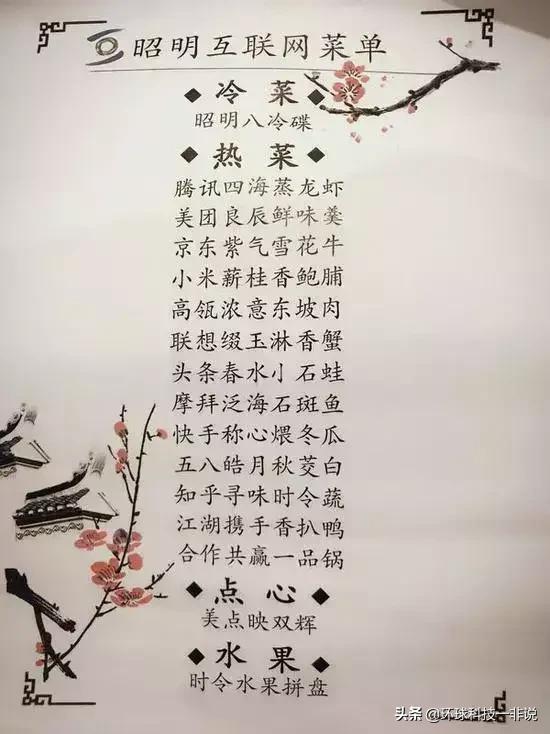 昭明互联网菜单
◆冷菜◆
昭明八冷碟
◆热菜◆
腾讯四海蒸龙虾
美团良辰鲜味羹
京东紫气雪花牛
小米薪桂香鲍脯
高瓴浓意东坡肉
联想缀玉淋香蟹
头条春水小石蛙
摩拜泛海石斑鱼
快手称心煨冬瓜
五八皓月秋茭白
知乎寻味时令蔬
江湖携手香扒鸭
合作共赢一品锅
◆点心◆
美点映双辉
◆水果◆
时令水果拼盘
头条 @环球科技一非说